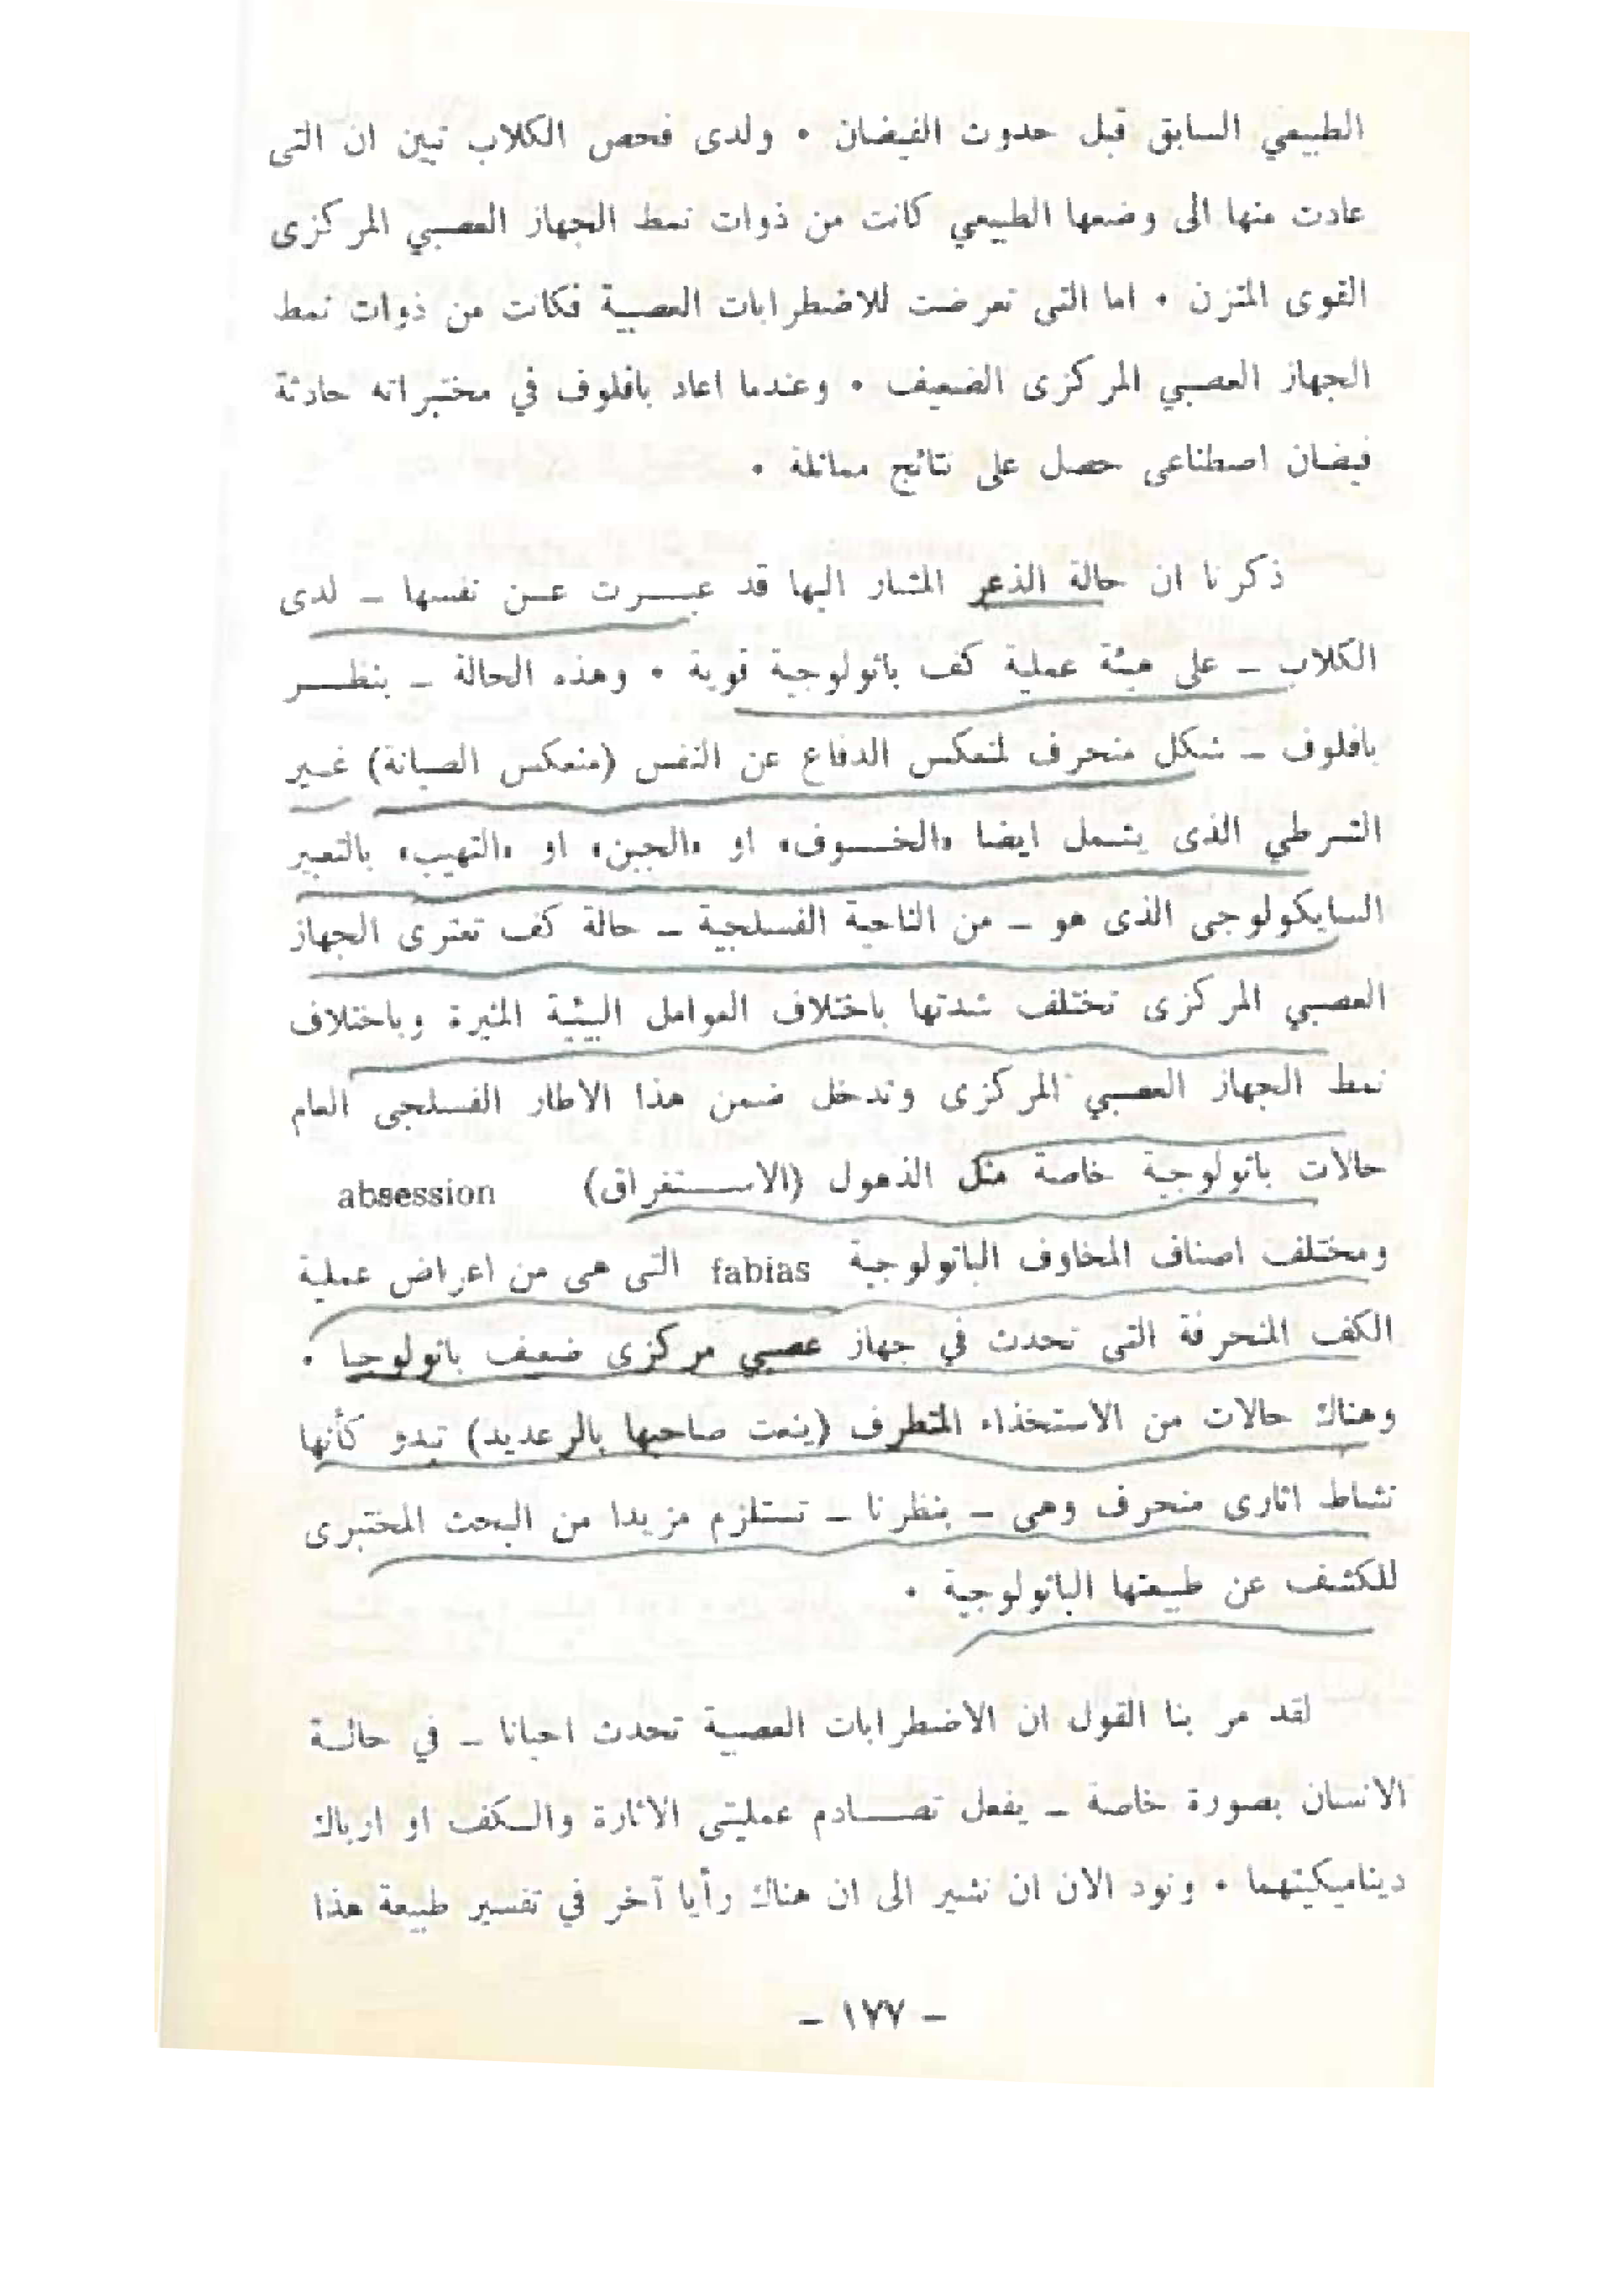 الطبيعي السابق قبل حدوث الفيضان • ولدى فحص الكلاب تبين ان التى
عادت منها الى وضعها الطبيعي كانت من ذوات نمط الجهاز العصبي المركزى
القوى المتزن • اما التى تعرضت للاضطرابات العصبية فكانت من ذوات نمط
الجهاز العصبي المركزى الضعيف • وعندما اعاد بافلوف في مختبراته حادثة
فيضان اصطناعى حصل على نتائج مماثلة •
ذكرنا ان حالة الذعر المشار اليها قد عبرت عن نفسها – لدى
الكلاب – على هيئة عملية كف باثولوجية قوية • وهذه الحالة – بنظر
بافلوف – شكل منحرف لمنعكس الدفاع عن النفس (منعكس الصيانة) غير
الشرطي الذى يشمل ايضا «الخوف» او «الجبن» او «التهيب» بالتعبير
السايكولوجى الذى هو – من الناحية الفسلجية – حالة كف تعترى الجهاز
العصبي المركزى تختلف شدتها باختلاف العوامل البيئية المثيرة وباختلاف
نمط الجهاز العصبي المركزى وتدخل ضمن هذا الاطار الفسلجى العام
حالات باثولوجية خاصة مثل الذهول (الاستغراق) absession
ومختلف اصناف المخاوف الباثولوجية fabias التى هى من اعراض عملية
الكف المنحرفة التى تحدث في جهاز عصبي مركزى ضعيف باثولوجيا •
وهناك حالات من الاستخذاء المتطرف (ينعت صاحبها بالرعديد) تبدو كأنها
نشاط اثارى منحرف وهى – بنظرنا – تستلزم مزيدا من البحث المختبرى
للكشف عن طبيعتها الباثولوجية •
لقد مر بنا القول ان الاضطرابات العصبية تحدث احيانا – في حالة
الانسان بصورة خاصة – بفعل تصادم عمليتى الاثارة والكف او ارباك
ديناميكيتهما • ونود الان ان نشير الى ان هناك رأيا آخر في تفسير طبيعة هذا
– ١٧٧ –